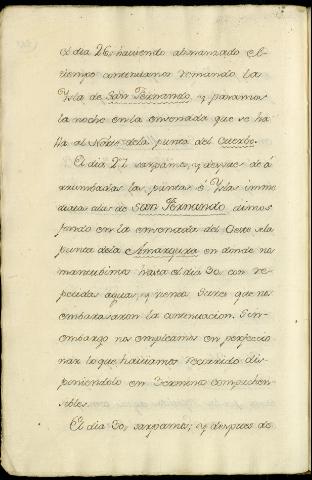 el dia 26, haviendo abonanzado el
tiempo continuamos remando la
Ysla de San Fernando, y paramos
la noche en la ensenada que se ha
lla al Norte de la punta del Cuerbo.
El dia 27 sarpamos, y despues de
arrumbadas las puntas é Yslas inme
diatas a la de San Fernando dimos
fondo en la ensenada del Oeste de la
punta de la Amargura en donde nos
mantubimos hasta el dia 30 con re
petidas aguas, y vientos Sures que nos
embarazaron la continuacion. Sin
embargo nos empleamos en perfeccio
nar lo que haviamos recorrido dis
poniendolo en terminos comprehen
sibles.
El dia 30, sarpamos, y despues de